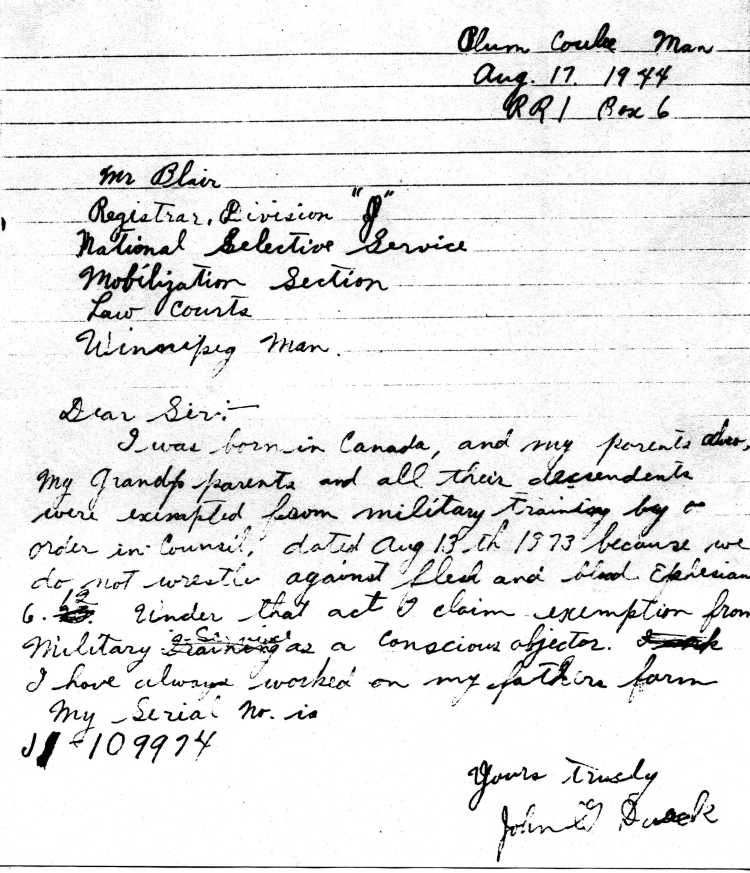 Plum Coulee Man
Aug. 17. 1944
RR1 Box 6
Mr Blair
Registrar, Division "J"
National Selective Service
Mobilization Section
Law Courts
Winnipeg Man.
Dear Sir:-
I was born in Canada, and my parents also,
My Grand parents and all their descendents
were exempted from military training by a
order in Council, dated Aug 13th 1873 because we
do not wrestle against flesh and blood Ephesians
6. 12. Under that act I claim exemption from
Military Service as a conscious objector.
I have always worked on my fathers farm
My Serial No. is
J1-109974
Yours truely
John Dueck